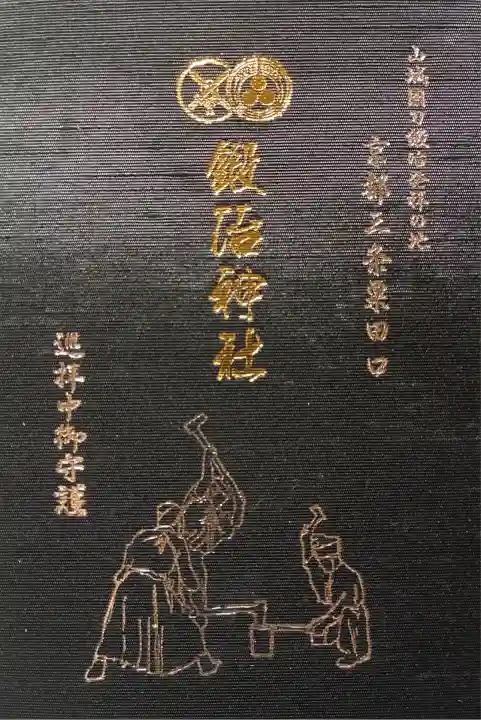 山城國刀鍛冶発祥の地
京都三条粟田口
鍛冶神社
巡拝中御守護